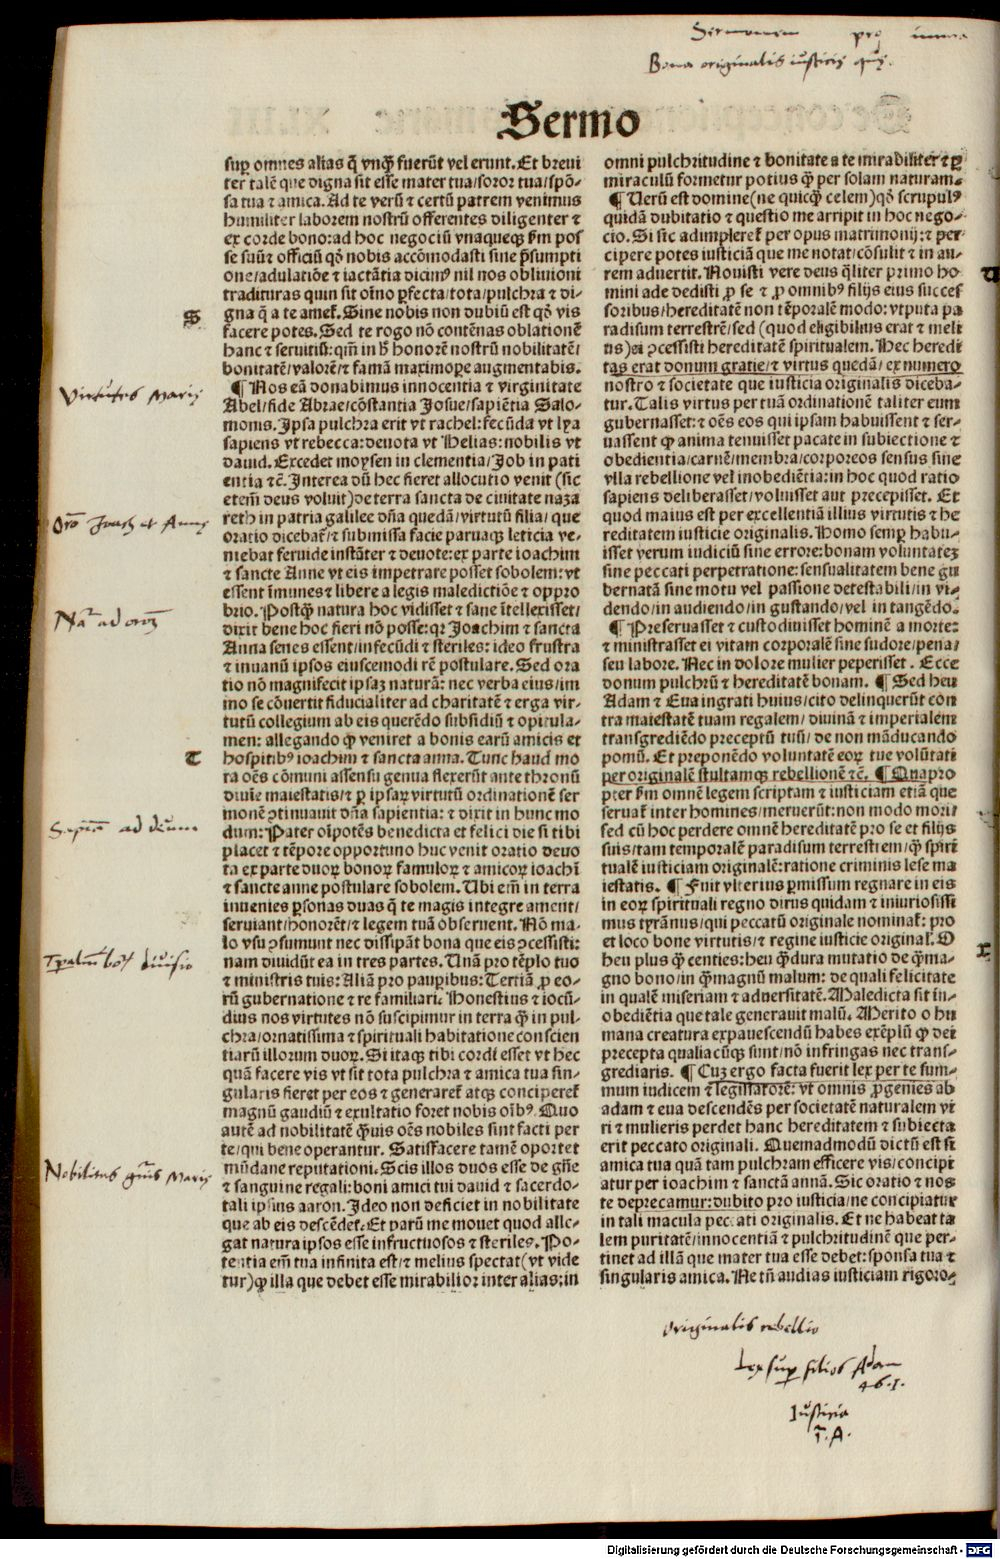 Bona originalis iusticie
Sermo
sup omnes alias q̃ vnq̃ fuerūt vel erunt. Et breui
ter talē que digna sit esse mater tua/soror tua/spō-
sa tua ⁊ amica. Ad te verū ⁊ certū patrem venimus
humiliter laborem nostrū offerentes diligenter ⁊
ex corde bono: ad hoc negociū vnaqueqꝫ ẜm pos
se suū ⁊ officiū qḋ nobis accōmodasti sine p̄sumpti
one/adulatiōe ⁊ iactātia dicimꝰ nil nos obliuioni
tradituras quin sit oīno ꝑfecta/tota/pulchra ⁊ di-
gna q̄ a te ameť. Sine nobis non dubiū est qḋ vis
facere potes. Sed te rogo nō contēnas oblationē
hanc ⁊ seruitiū: qm̄ in ħ honorē nostrū nobilitatē/
bonitatē/valorē/⁊ famā maximope augmentabis.
¶ Nos eā donabimus innocentia ⁊ virginitate
Abel/fide Abrae/cōstantia Josue/sapiētia Salo-
monis. Ipsa pulchra erit vt rachel: fecūda vt lya
sapiens vt rebecca: deuota vt Helias: nobilis vt
dauid. Excedet moysen in clementia/Job in pati
entia ⁊c̄. Interea dū hec fieret allocutio venit (sic
etem̄ deus voluit) de terra sancta de ciuitate naza
reth in patria galilee dn̄a quedā/virtutū filia/que
oratio dicebať/⁊ submissa facie paruaqꝫ leticia ve-
niebat feruide instāter ⁊ deuote: ex parte ioachim
⁊ sancte Anne vt eis impetrare posset sobolem: vt
essent īmunes ⁊ libere a legis maledictiōe ⁊ oppro
brio. Postq̄ natura hoc vidisset ⁊ sane ītellexisset/
dixit bene hoc fieri nō posse: qꝛ Joachim ⁊ sancta
Anna senes essent/infecūdi ⁊ steriles: ideo frustra
⁊ inuanū ipsos eiuscemodi rē postulare. Sed ora
tio nō magnifecit ipsaꝫ naturā: nec verba eius/im
mo se cōuertit fiducialiter ad charitatē ⁊ erga vir-
tutū collegium ab eis querēdo subsidiū ⁊ opitula-
men: allegando ꝙ veniret a bonis earū amicis et
hospitibꝰ ioachim ⁊ sancta anna. Tunc haud mo
ra oēs cōmuni assensu genua flexerūt ante thronū
diuīe maiestatis/⁊ ꝑ ipsaꝝ virtutū ordinationē ser
monē ꝯtinuauit dn̄a sapientia: ⁊ dixit in hunc mo
dum: Pater oīpotēs benedicta et felici die si tibi
placet ⁊ tēpore opportuno huc venit oratio deuo
ta ex parte duoꝝ bonoꝝ famuloꝝ ⁊ amicoꝝ ioachī
⁊ sancte anne postulare sobolem. Ubi em̄ in terra
inuenies ꝑsonas duas q̄ te magis integre ament/
seruiant/honorēt/⁊ legem tuā obseruent. Nō ma-
lo vsu ꝯsumunt nec dissipāt bona que eis ꝯcessisti:
nam diuidūt ea in tres partes. Unā pro tēplo tuo
⁊ ministris tuis: Aliā pro pauꝑibus: Tertiā ꝓ eo-
rū gubernatione ⁊ re familiari. Honestius ⁊ iocū-
dius nos virtutes nō suscipimur in terra q̄ in pul-
chra/ornatissima ⁊ spirituali habitatione conscien
tiarū illorum duoꝝ. Si itaqꝫ tibi cordi esset vt hec
quā facere vis vt sit tota pulchra ⁊ amica tua sin-
gularis fieret per eos ⁊ generareť atqꝫ conciperet
magnū gaudiū ⁊ exultatio foret nobis oībꝰ. Quo
autē ad nobilitatē q̄uis oēs nobiles sint facti per
te/qui bene operantur. Satisfacere tamē oportet
mūdane reputationi. Scis illos duos esse de gn̄e
⁊ sanguine regali: boni amici tui dauid ⁊ sacerdo-
tali ipsius aaron. Ideo non deficiet in nobilitate
que ab eis descēdeť. Et parū me mouet quod alle-
gat natura ipsos esse infructuosos ⁊ steriles. Po-
tentia em̄ tua infinita est/⁊ melius spectat (vt vide
tur) ꝙ illa que debet esse mirabilior inter alias: in
omni pulchritudine ⁊ bonitate a te mirabiliter ⁊ ꝑ
miraculū formetur potius q̄ per solam naturam.
¶ Uerū est domine (ne quicq̄ celem) qḋ scrupulꝰ
quidā dubitatio ⁊ questio me arripit in hoc nego-
cio. Si sic adimplereť per opus matrimonij: ⁊ per-
cipere potes iusticiā que me notat/cōsulit ⁊ in au-
rem aduertit. Nouisti vere deus q̄liter primo ho
mini ade dedisti ꝓ se ⁊ ꝓ omnibꝰ filijs eius succes
soribus/hereditatē non tēporalē modo: vtputa pa
radisum terrestrē/sed (quod eligibilius erat ⁊ meli
us) ei ꝯcessisti hereditatē spiritualem. Hec heredi
tas erat donum gratie/⁊ virtus quedā/ex numero
nostro ⁊ societate que iusticia originalis diceba-
tur. Talis virtus per tuā ordinationē taliter eum
gubernasset: ⁊ oēs eos qui ipsam habuissent ⁊ ser-
uassent ꝙ anima tenuisset pacate in subiectione ⁊
obedientia/carnē/membra/corporeos sensus sine
vlla rebellione vel inobediētia: in hoc quod ratio
sapiens deliberasset/voluisset aut precepisset. Et
quod maius est per excellentiā illius virtutis ⁊ he
reditatem iusticie originalis. Homo semꝑ habu-
isset verum iudiciū sine errore: bonam voluntateꝫ
sine peccati perpetratione: sensualitatem bene gu
bernatā sine motu vel passione detestabili/in vi-
dendo/in audiendo/in gustando/vel in tangēdo.
¶ Preseruasset ⁊ custodiuisset hominē a morte:
⁊ ministrasset ei vitam corporalē sine sudore/pena/
seu labore. Nec in dolore mulier peperisset. Ecce
donum pulchrū ⁊ hereditatē bonam. ¶ Sed heu
Adam ⁊ Eua ingrati huius/cito delinquerūt con
tra maiestatē tuam regalem/diuinā ⁊ imperialem
transgrediēdo preceptū tuū/de non māducando
pomū. Et preponēdo voluntatē eoꝝ tue volūtati
per originalē stultamqꝫ rebellionē ⁊c̄. ¶ Quapro
pter ẜm omnē legem scriptam ⁊ iusticiam etiā que
seruať inter homines/meruerūt: non modo mori/
sed cū hoc perdere omnē hereditatē pro se et filijs
suis/tam temporalē paradisum terrestrem/q̄ spiri
tualē iusticiam originalē: ratione criminis lese ma
iestatis. ¶ Fuit vlterius ꝑmissum regnare in eis
in eoꝝ spirituali regno dirus quidam ⁊ iniuriosissi
mus tyrānus/qui peccatū originale nominať: pro
et loco bone virtutis/⁊ regine iusticie original'. O
heu plus q̄ centies: heu q̄ dura mutatio de q̄ma-
gno bono/in q̄magnū malum: de quali felicitate
in qualē miseriam ⁊ aduersitatē. Maledicta sit in-
obediētia que tale generauit malū. Merito o hu
mana creatura expauescendū habes exēplū ꝙ dei
precepta qualiacūqꝫ sint/nō infringas nec trans-
grediaris. ¶ Cuꝫ ergo facta fuerit lex per te sum-
mum iudicem ⁊ legislatorē: vt omnis ꝓgenies ab
adam ⁊ eua descendēs per societatē naturalem vi
ri ⁊ mulieris perdet hanc hereditatem ⁊ subiecta
erit peccato originali. Quemadmodū dictū est si
amica tua quā tam pulchram efficere vis/concipi
atur per ioachim ⁊ sanctā annā. Sic oratio ⁊ nos
te deprecamur: dubito pro iusticia/ne concipiatur
in tali macula peccati originalis. Et ne habeat ta
lem puritatē/innocentiā ⁊ pulchritudinē que per-
tinet ad illā que mater tua esse debet: sponsa tua ⁊
singularis amica. Ne tn̄ audias iusticiam rigoro-
S
T
V
X
Virtutes Marie
Na. ad oroēm
Sapiē ad deum
Nobilitas Marie
Originalis rebellio
Lex sup filios Adam
46.I.
Iusticia
T. A.
Digitalisierung gefördert durch die Deutsche Forschungsgemeinschaft - DFG